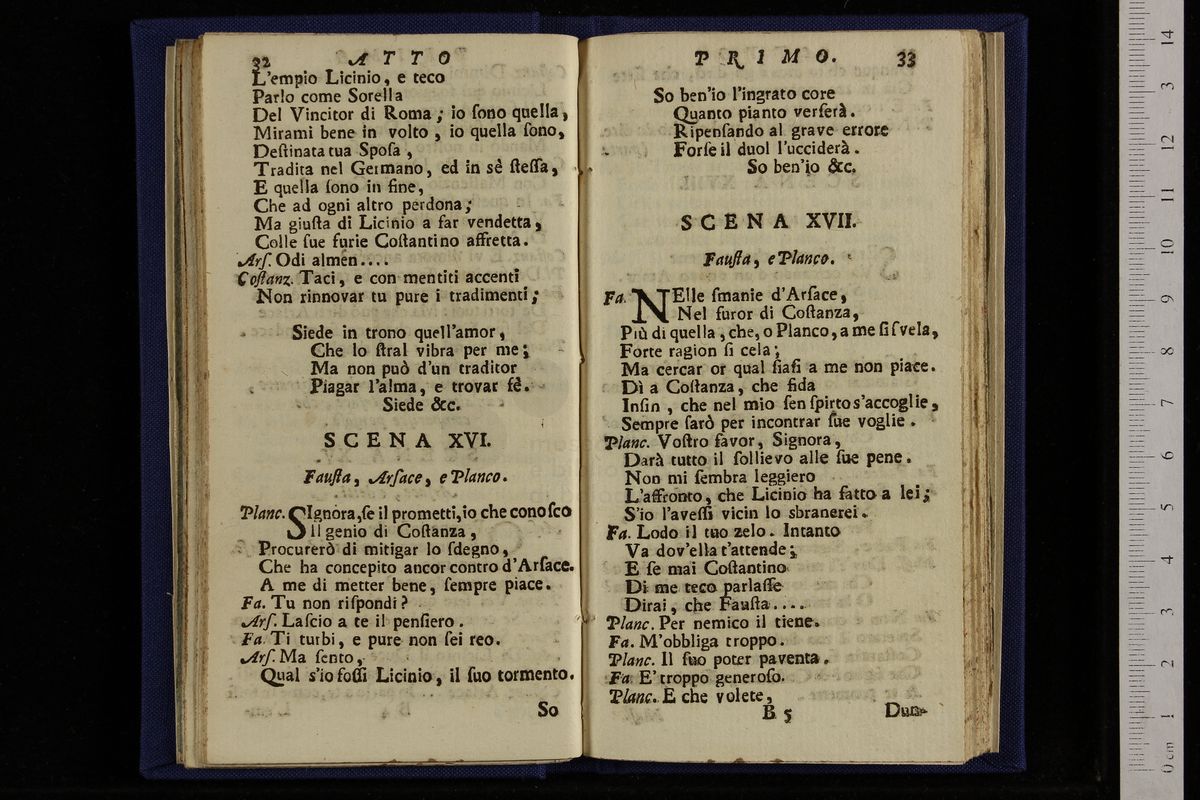 32 ATTO
L'empio Licinio, e teco
Parlo come Sorella
Del Vincitor di Roma; io ſono quella,
Mirami bene in volto, io quella ſono,
Deſtinata tua Spoſa,
Tradita nel Germano, ed in sè ſteſſa,
E quella ſono in fine,
Che ad ogni altro perdona;
Ma giuſta di Licinio a far vendetta,
Colle ſue furie Coſtantino affretta.
Arſ. Odi almen....
Coſtanz. Taci, e con mentiti accenti
Non rinnovar tu pure i tradimenti;
Siede in trono quell'amor,
Che lo ſtral vibra per me;
Ma non può d'un traditor
Piagar l'alma, e trovar fè.
Siede &c.
SCENA XVI.
Fauſta, Arſace, e Planco.
Planc. SIgnora, ſe il prometti, io che conoſco
Il genio di Coſtanza,
Procurerò di mitigar lo ſdegno,
Che ha concepito ancor contro d'Arſace.
A me di metter bene, ſempre piace.
Fa. Tu non riſpondi?
Arſ. Laſcio a te il penſiero.
Fa. Ti turbi, e pure non ſei reo.
Arſ. Ma ſento,
Qual s'io foſſi Licinio, il ſuo tormento.
So
PRIMO. 33
So ben'io l'ingrato core
Quanto pianto verſerà.
Ripenſando al grave errore
Forſe il duol l'ucciderà.
So ben'io &c.
SCENA XVII.
Fauſta, e Planco.
Fa. NElle ſmanie d'Arſace,
Nel furor di Coſtanza,
Più di quella, che, o Planco, a me ſi ſvela,
Forte ragion ſi cela;
Ma cercar or qual ſiaſi a me non piace.
Dì a Coſtanza, che fida
Inſin, che nel mio ſen ſpirto s'accoglie,
Sempre ſarò per incontrar ſue voglie.
Planc. Voſtro favor, Signora,
Darà tutto il ſollievo alle ſue pene.
Non mi ſembra leggiero
L'affronto, che Licinio ha fatto a lei;
S'io l'aveſſi vicin lo sbranerei.
Fa. Lodo il tuo zelo. Intanto
Va dov'ella t'attende;
E ſe mai Coſtantino
Di me teco parlaſſe
Dirai, che Fauſta....
Planc. Per nemico il tiene.
Fa. M'obbliga troppo.
Planc. Il ſuo poter paventa.
Fa. E' troppo generoſo.
Planc. E che volete,
B 5 Dun-
0 cm 1 2 3 4 5 6 7 8 9 10 11 12 3 14